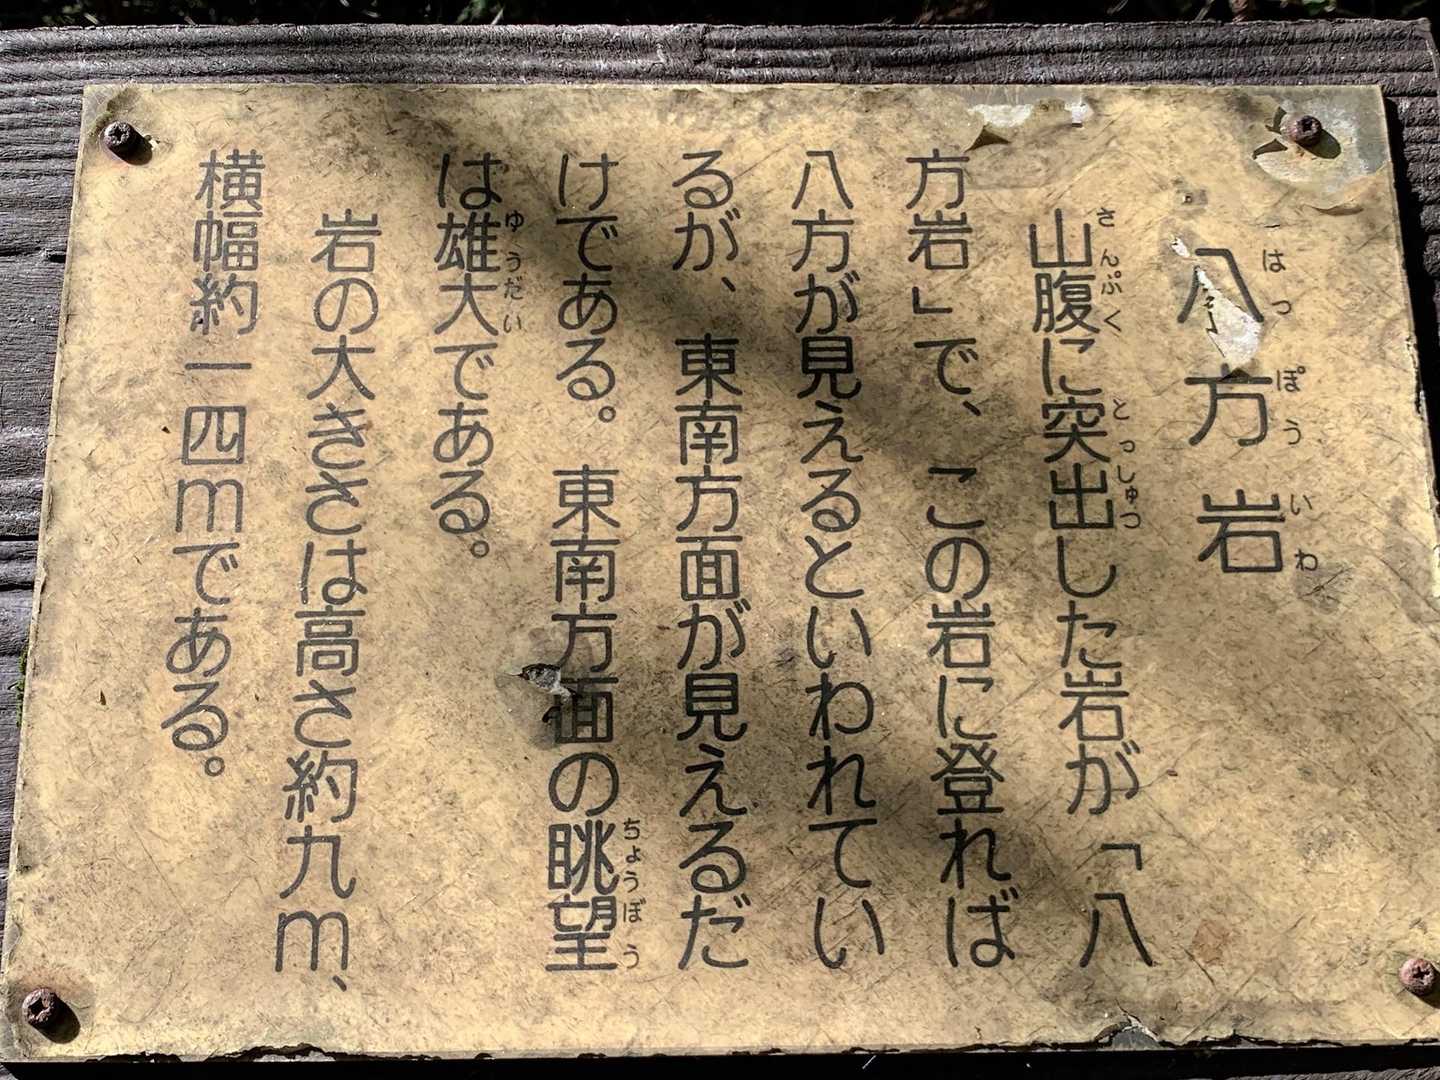 八方岩
はっぽういわ
山腹に突出した岩が「八
さんぷく とっしゅつ
方岩」で、この岩に登れば
八方が見えるといわれてい
るが、東南方面が見えるだ
けである。東南方面の眺望
ちょうぼう
は雄大である。
ゆうだい
岩の大きさは高さ約九m、
横幅約一四mである。